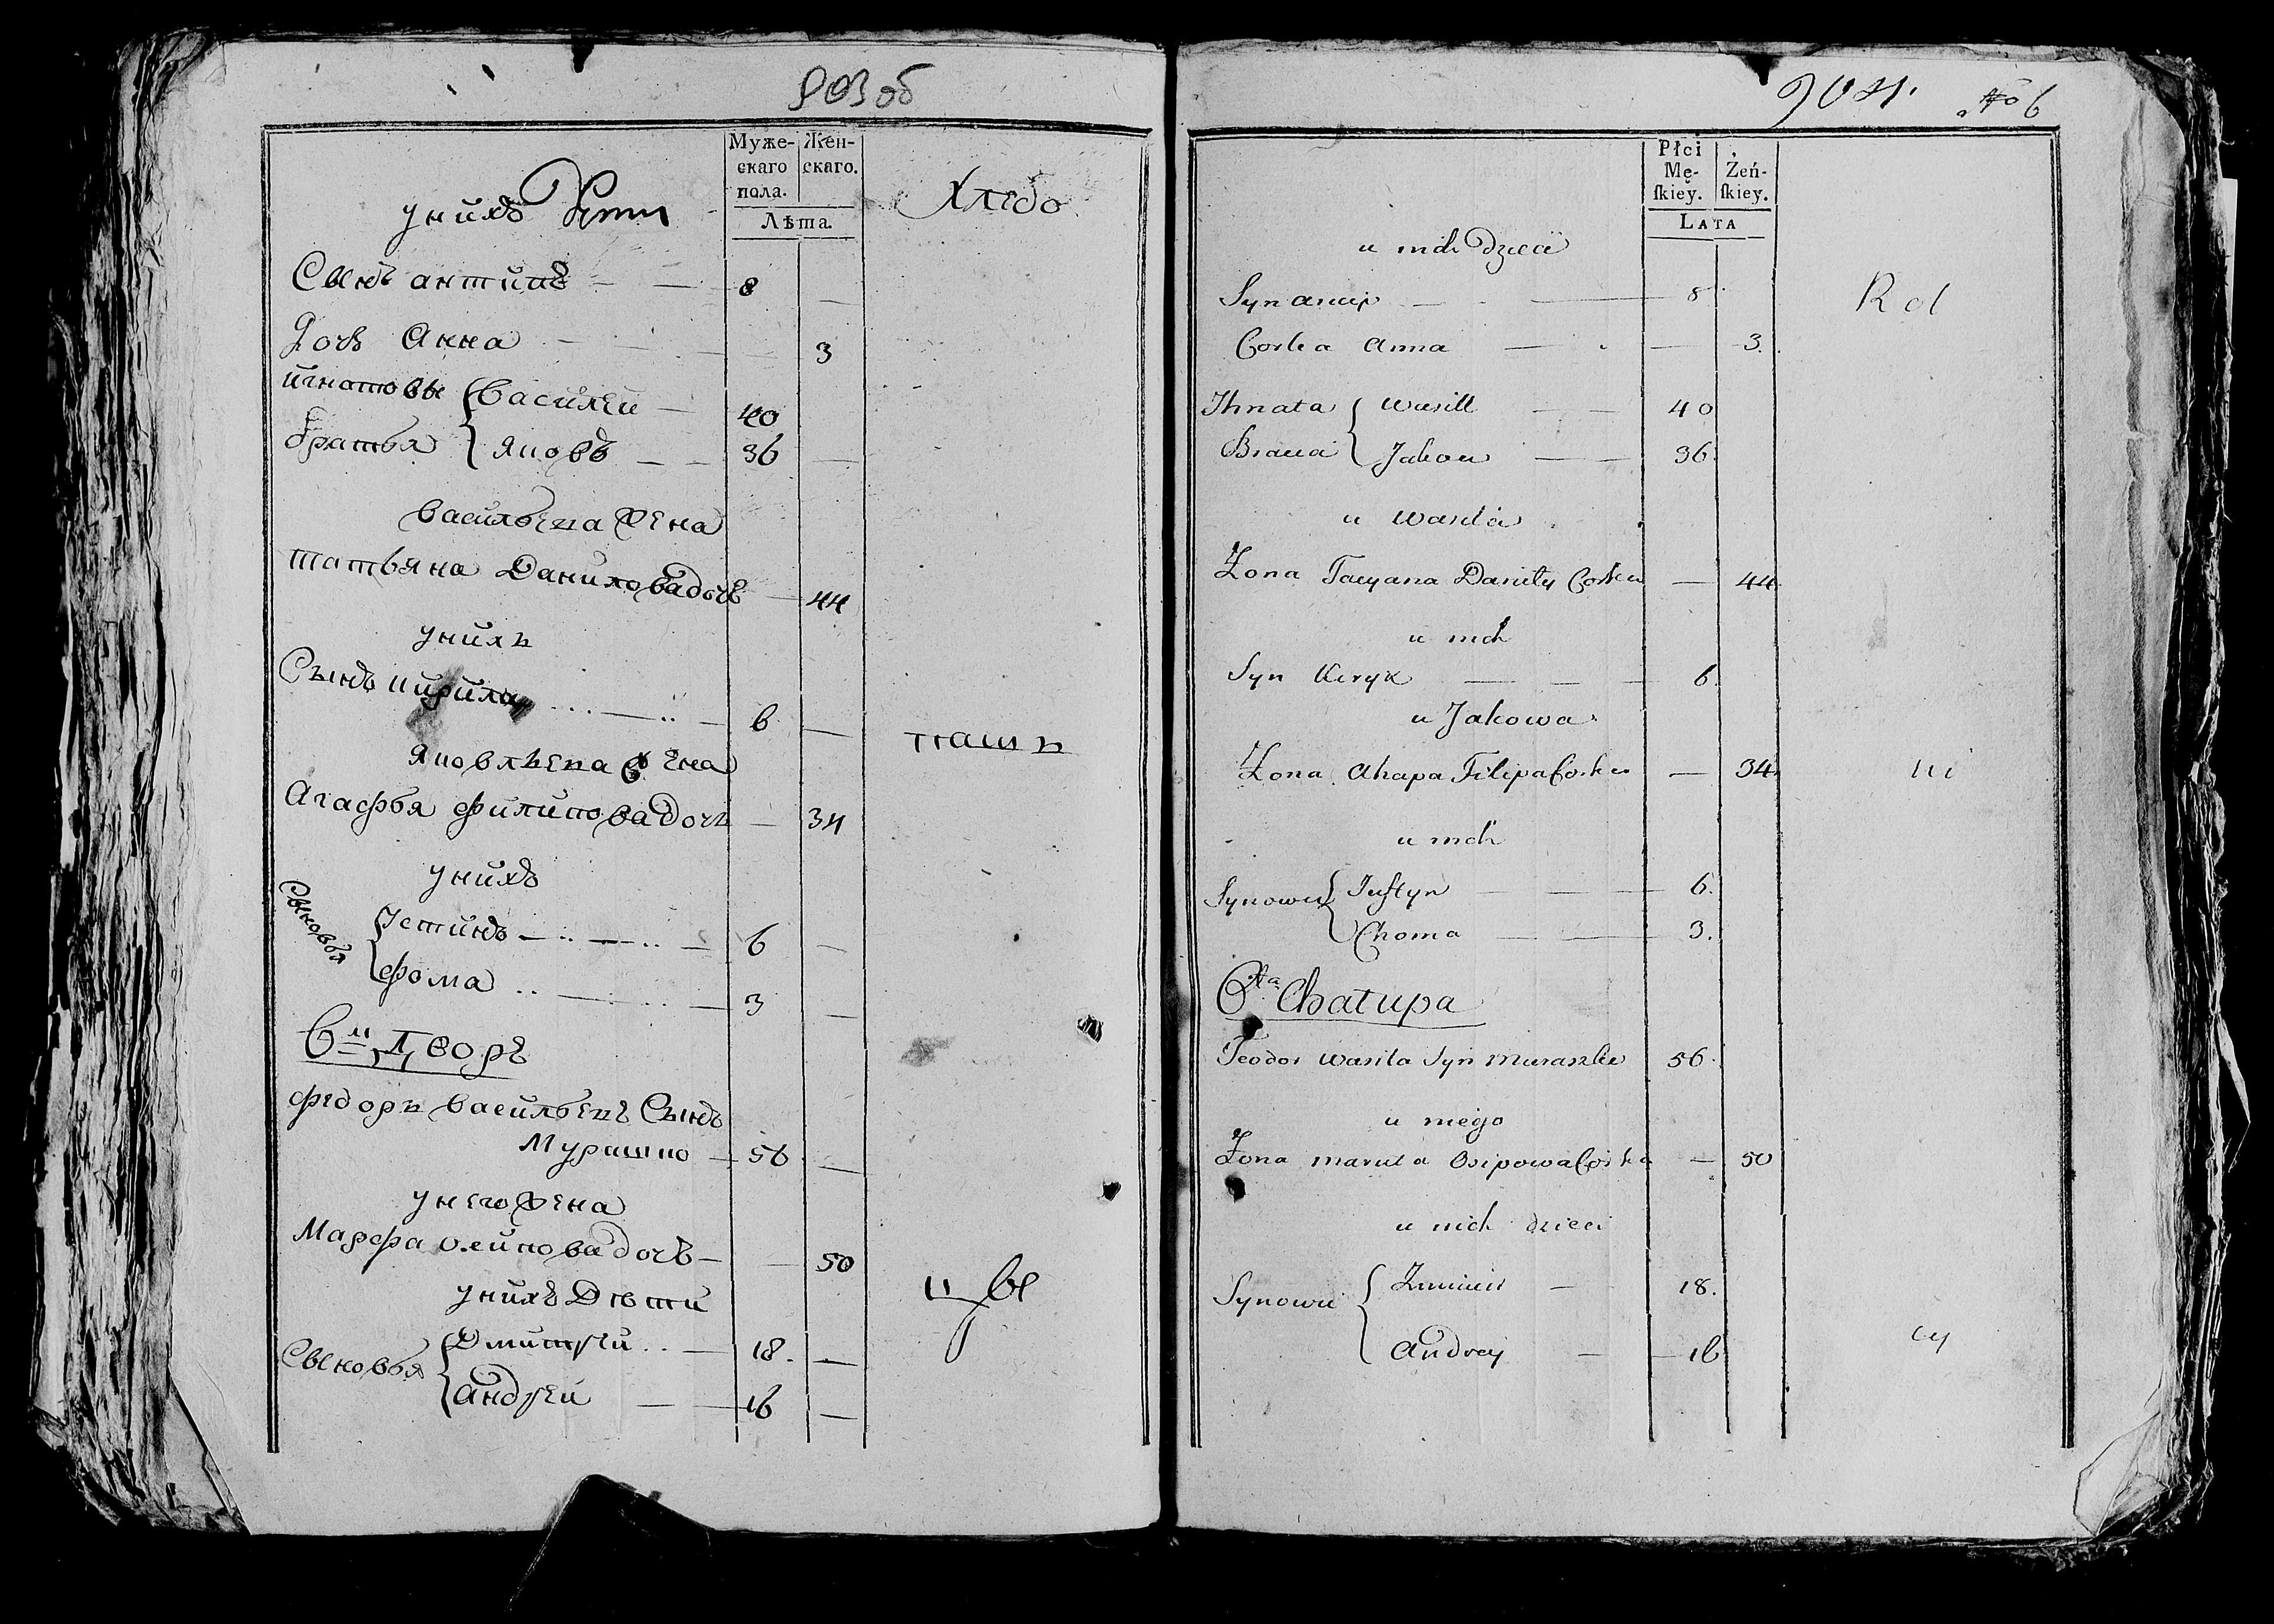 903 об
Муже-
скаго
пола.
Жен-
скаго.
Лѣта.
у нихъ Дети
Хлебо
Сынъ антипъ 8
Дочь Анна 3
игнатовы братья { Василей 40
Яковъ 36
Васильева Жена
татьяна Данилова дочь 44
у нихъ
Сынъ кирила 6
пашъ
Яковлева жена
Агафья филипова дочь 34
у нихъ
Сыновья { Устинъ 6
фома 3
6й Дворъ
федоръ васильевъ Сынъ
Мурашко 56
у него Жена
Марфа осипова дочь 50
у нихъ Дѣти
цы
Сыновья { Дмитрей 18.
андрей 16
904. №6
Płci
Mę-
ſkiey.
Żeń-
ſkiey.
LATA
u nich Dzieci
Syn Ancip 8
Rol
Corka Anna 3.
Ihnata Bracia { Wasill 40
Jakow 36.
u Wasila
Żona Tacyana Daniły Corka 44
u nich
Syn Kiryk 6.
u Jakowa
Żona Ahapa Filipa Corka 34.
ni
u nich
Synowie { Juſtyn 6.
Choma 3.
6ta Chałupa
Teodor Wasila Syn Muraszko 56.
u niego
Żona maruta Osipowa Corka 50
u nich dzieci
Synowie { 18.
Andrey 16
cy